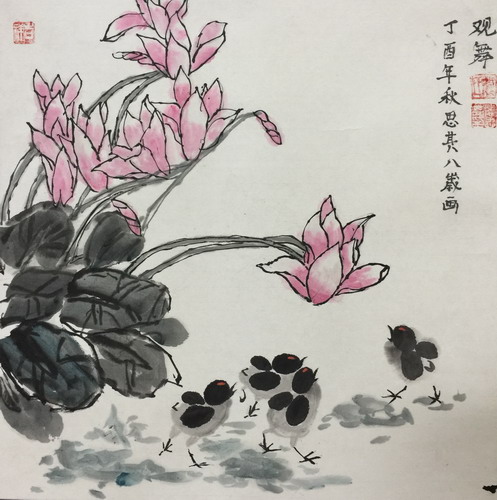 观舞
丁酉年秋思其八岁画